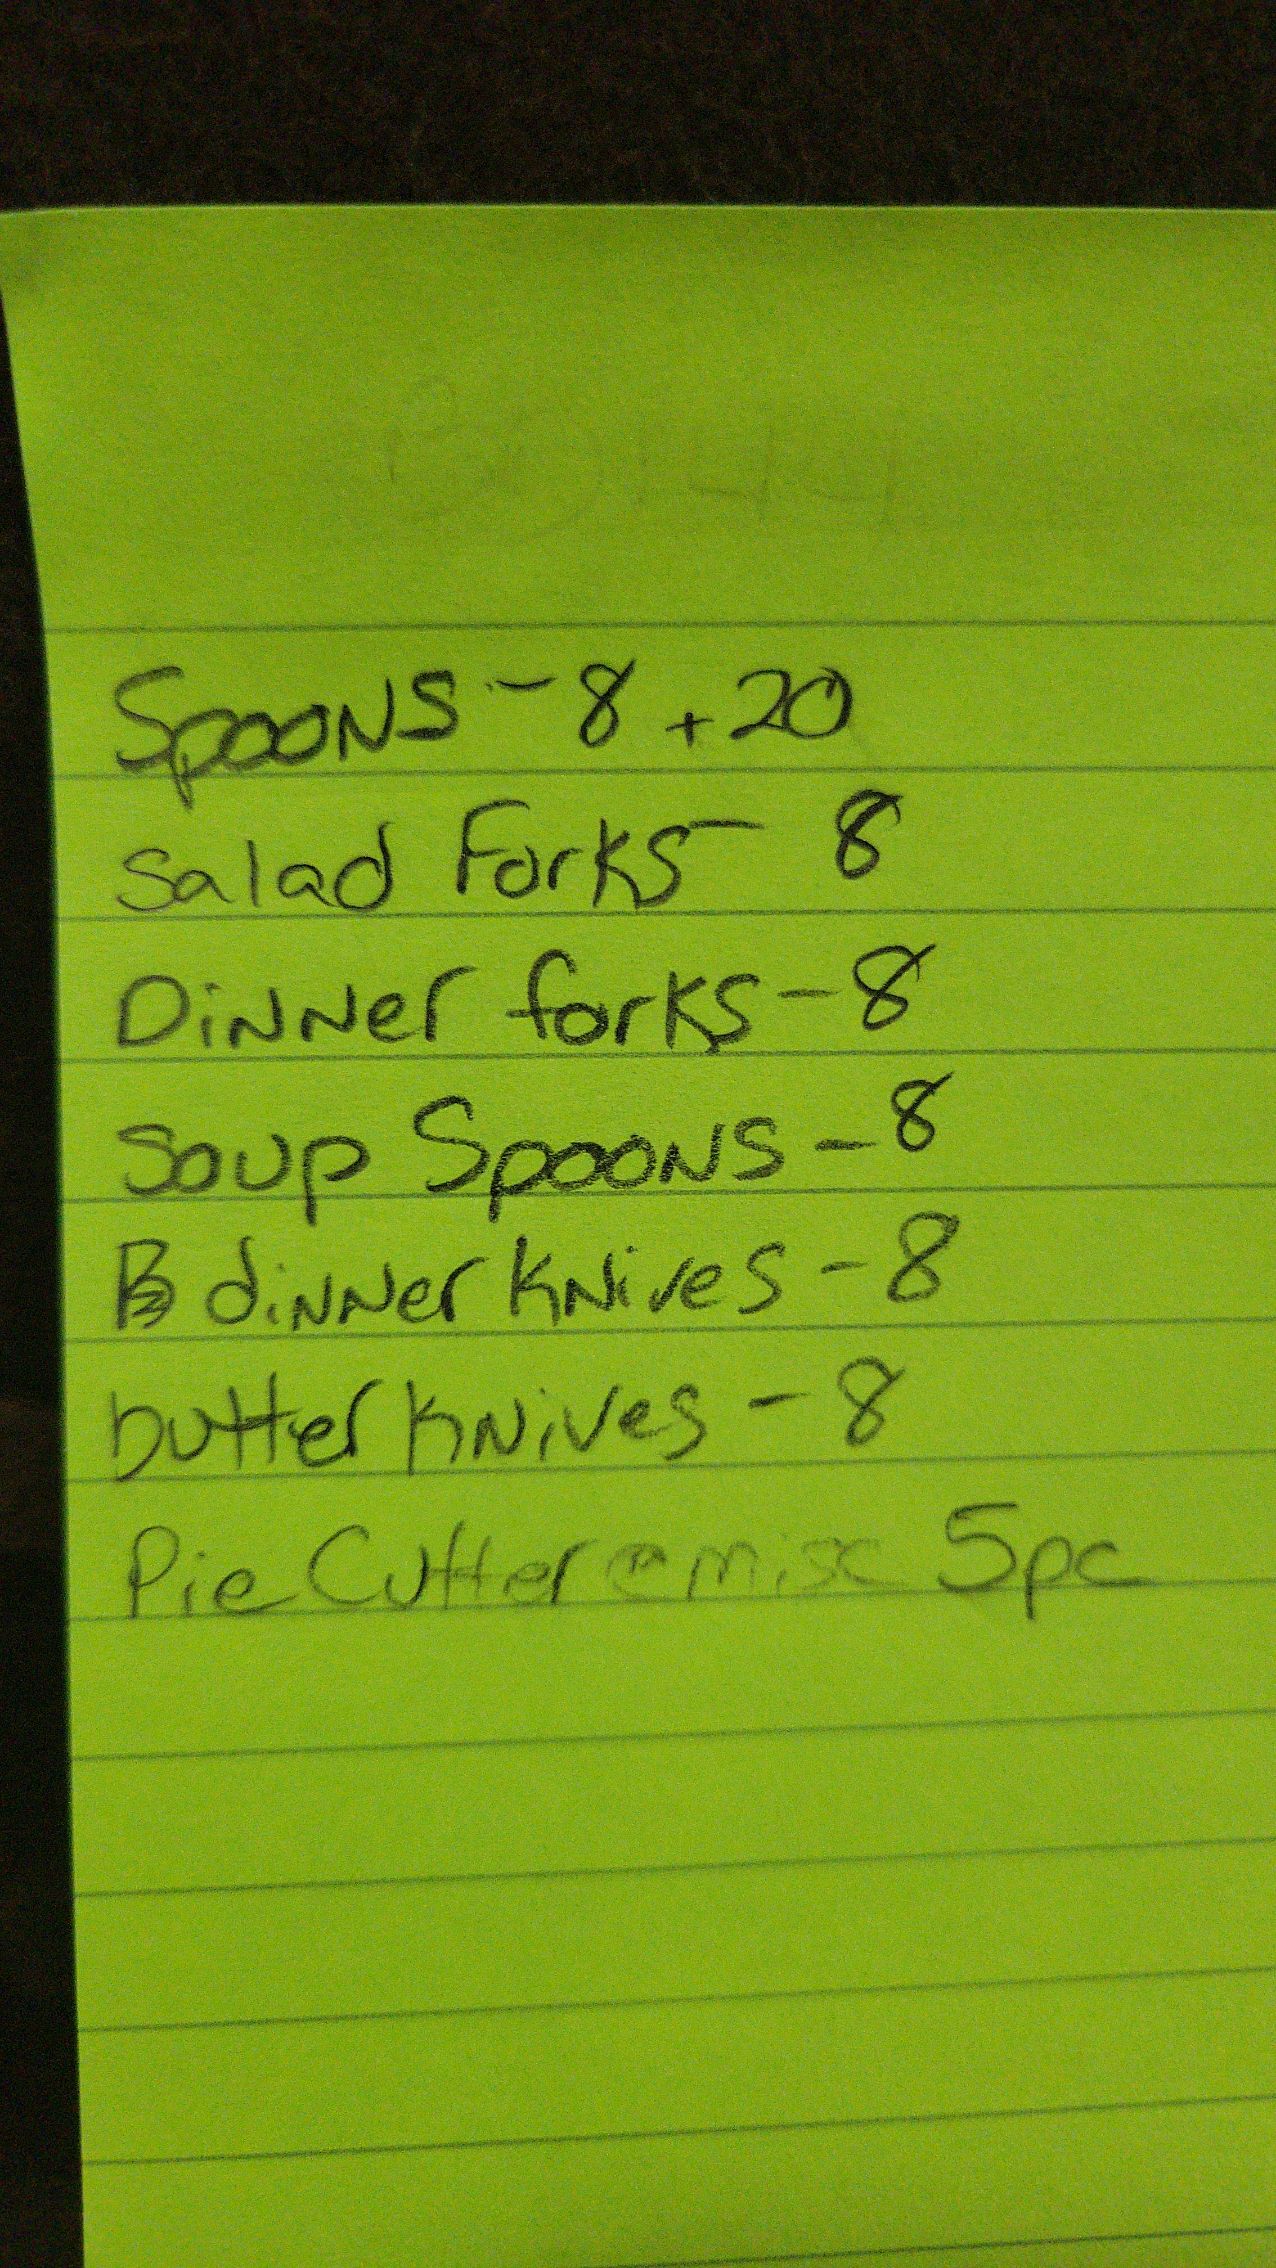 Spoons - 8 + 20
Salad Forks - 8
Dinner forks - 8
Soup Spoons - 8
dinner Knives - 8
butter Knives - 8
Pie Cutter misc 5pc